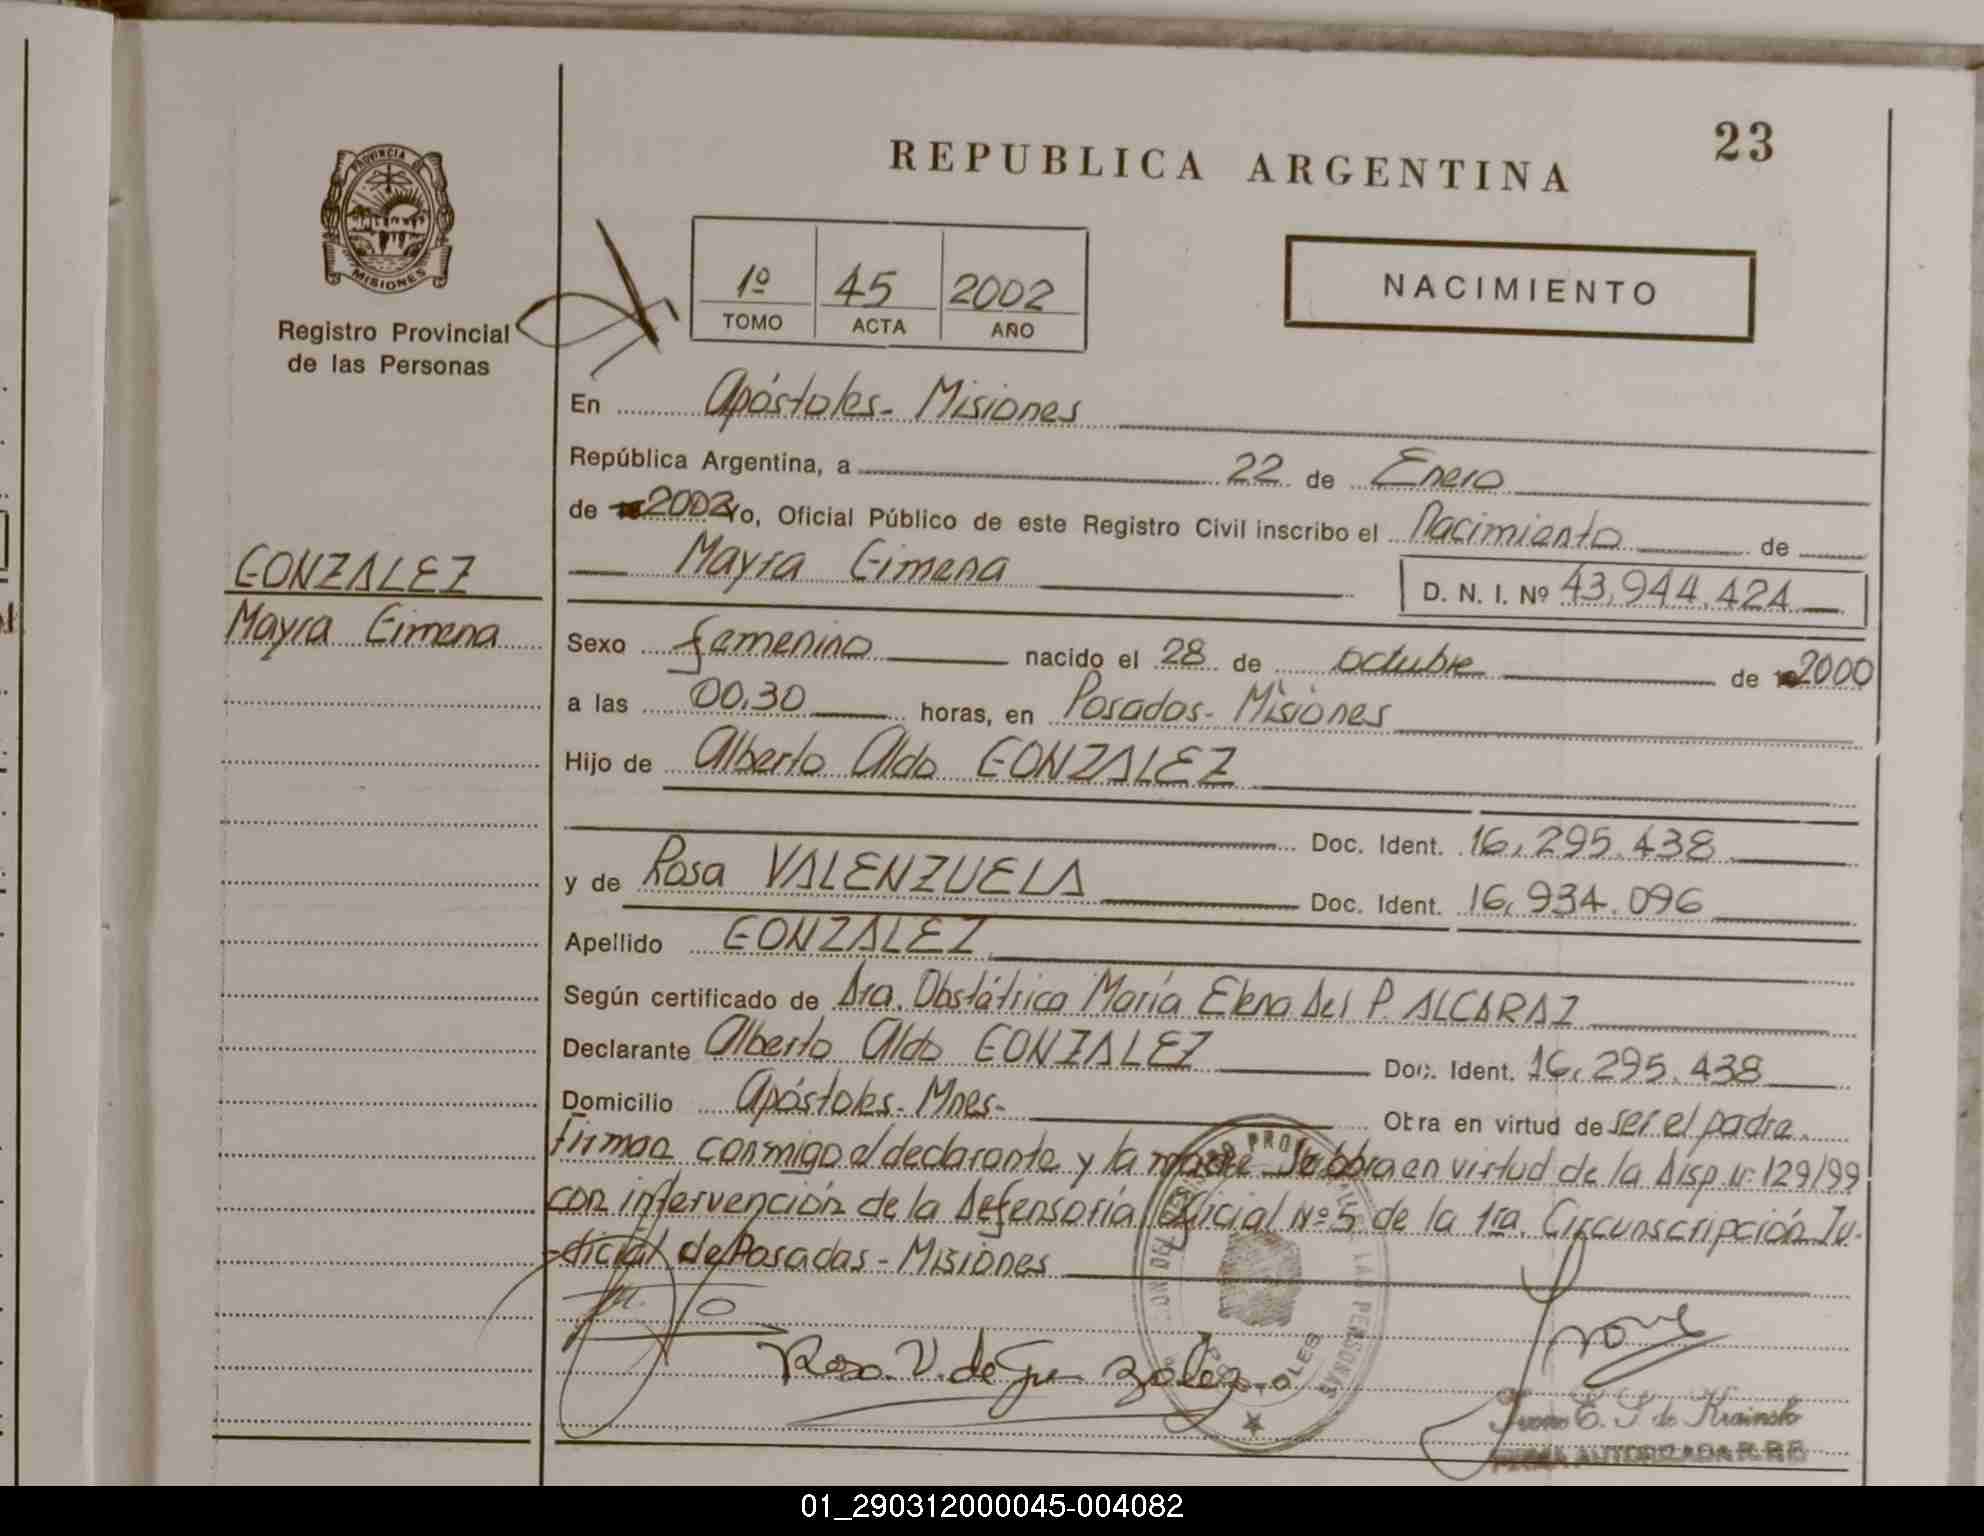 REPUBLICA ARGENTINA
23
PROVINCIA DE
MISIONES
Registro Provincial
de las Personas
1º 45 2002
TOMO ACTA AÑO
NACIMIENTO
En Apóstoles - Misiones
República Argentina, a 22 de Enero
de 2002 Yo, Oficial Público de este Registro Civil inscribo el Nacimiento de
Mayra Gimena D. N. I. Nº 43.944.424
GONZALEZ
Mayra Gimena
Sexo femenino nacido el 28 de octubre de 2000
a las 00.30 horas, en Posadas - Misiones
Hijo de Alberto Aldo GONZALEZ
Doc. Ident. 16.295.438
y de Rosa VALENZUELA Doc. Ident. 16.934.096
Apellido GONZALEZ
Según certificado de Dra. Obstétrica María Elena Del P. ALCARAZ
Declarante Alberto Aldo GONZALEZ Doc. Ident. 16.295.438
Domicilio Apóstoles - Mnes - Obra en virtud de ser el padre.
firman conmigo el declarante y la madre Se obra en virtud de la Disp. Nº 129/99
con intervención de la Defensoría Oficial Nº 5 de la 1ra. Circunscripción Ju-
dicial de Posadas - Misiones
Rosa. V. de Gonzalez
FIRMA AUTORIZADA R.P.P.
01_290312000045-004082